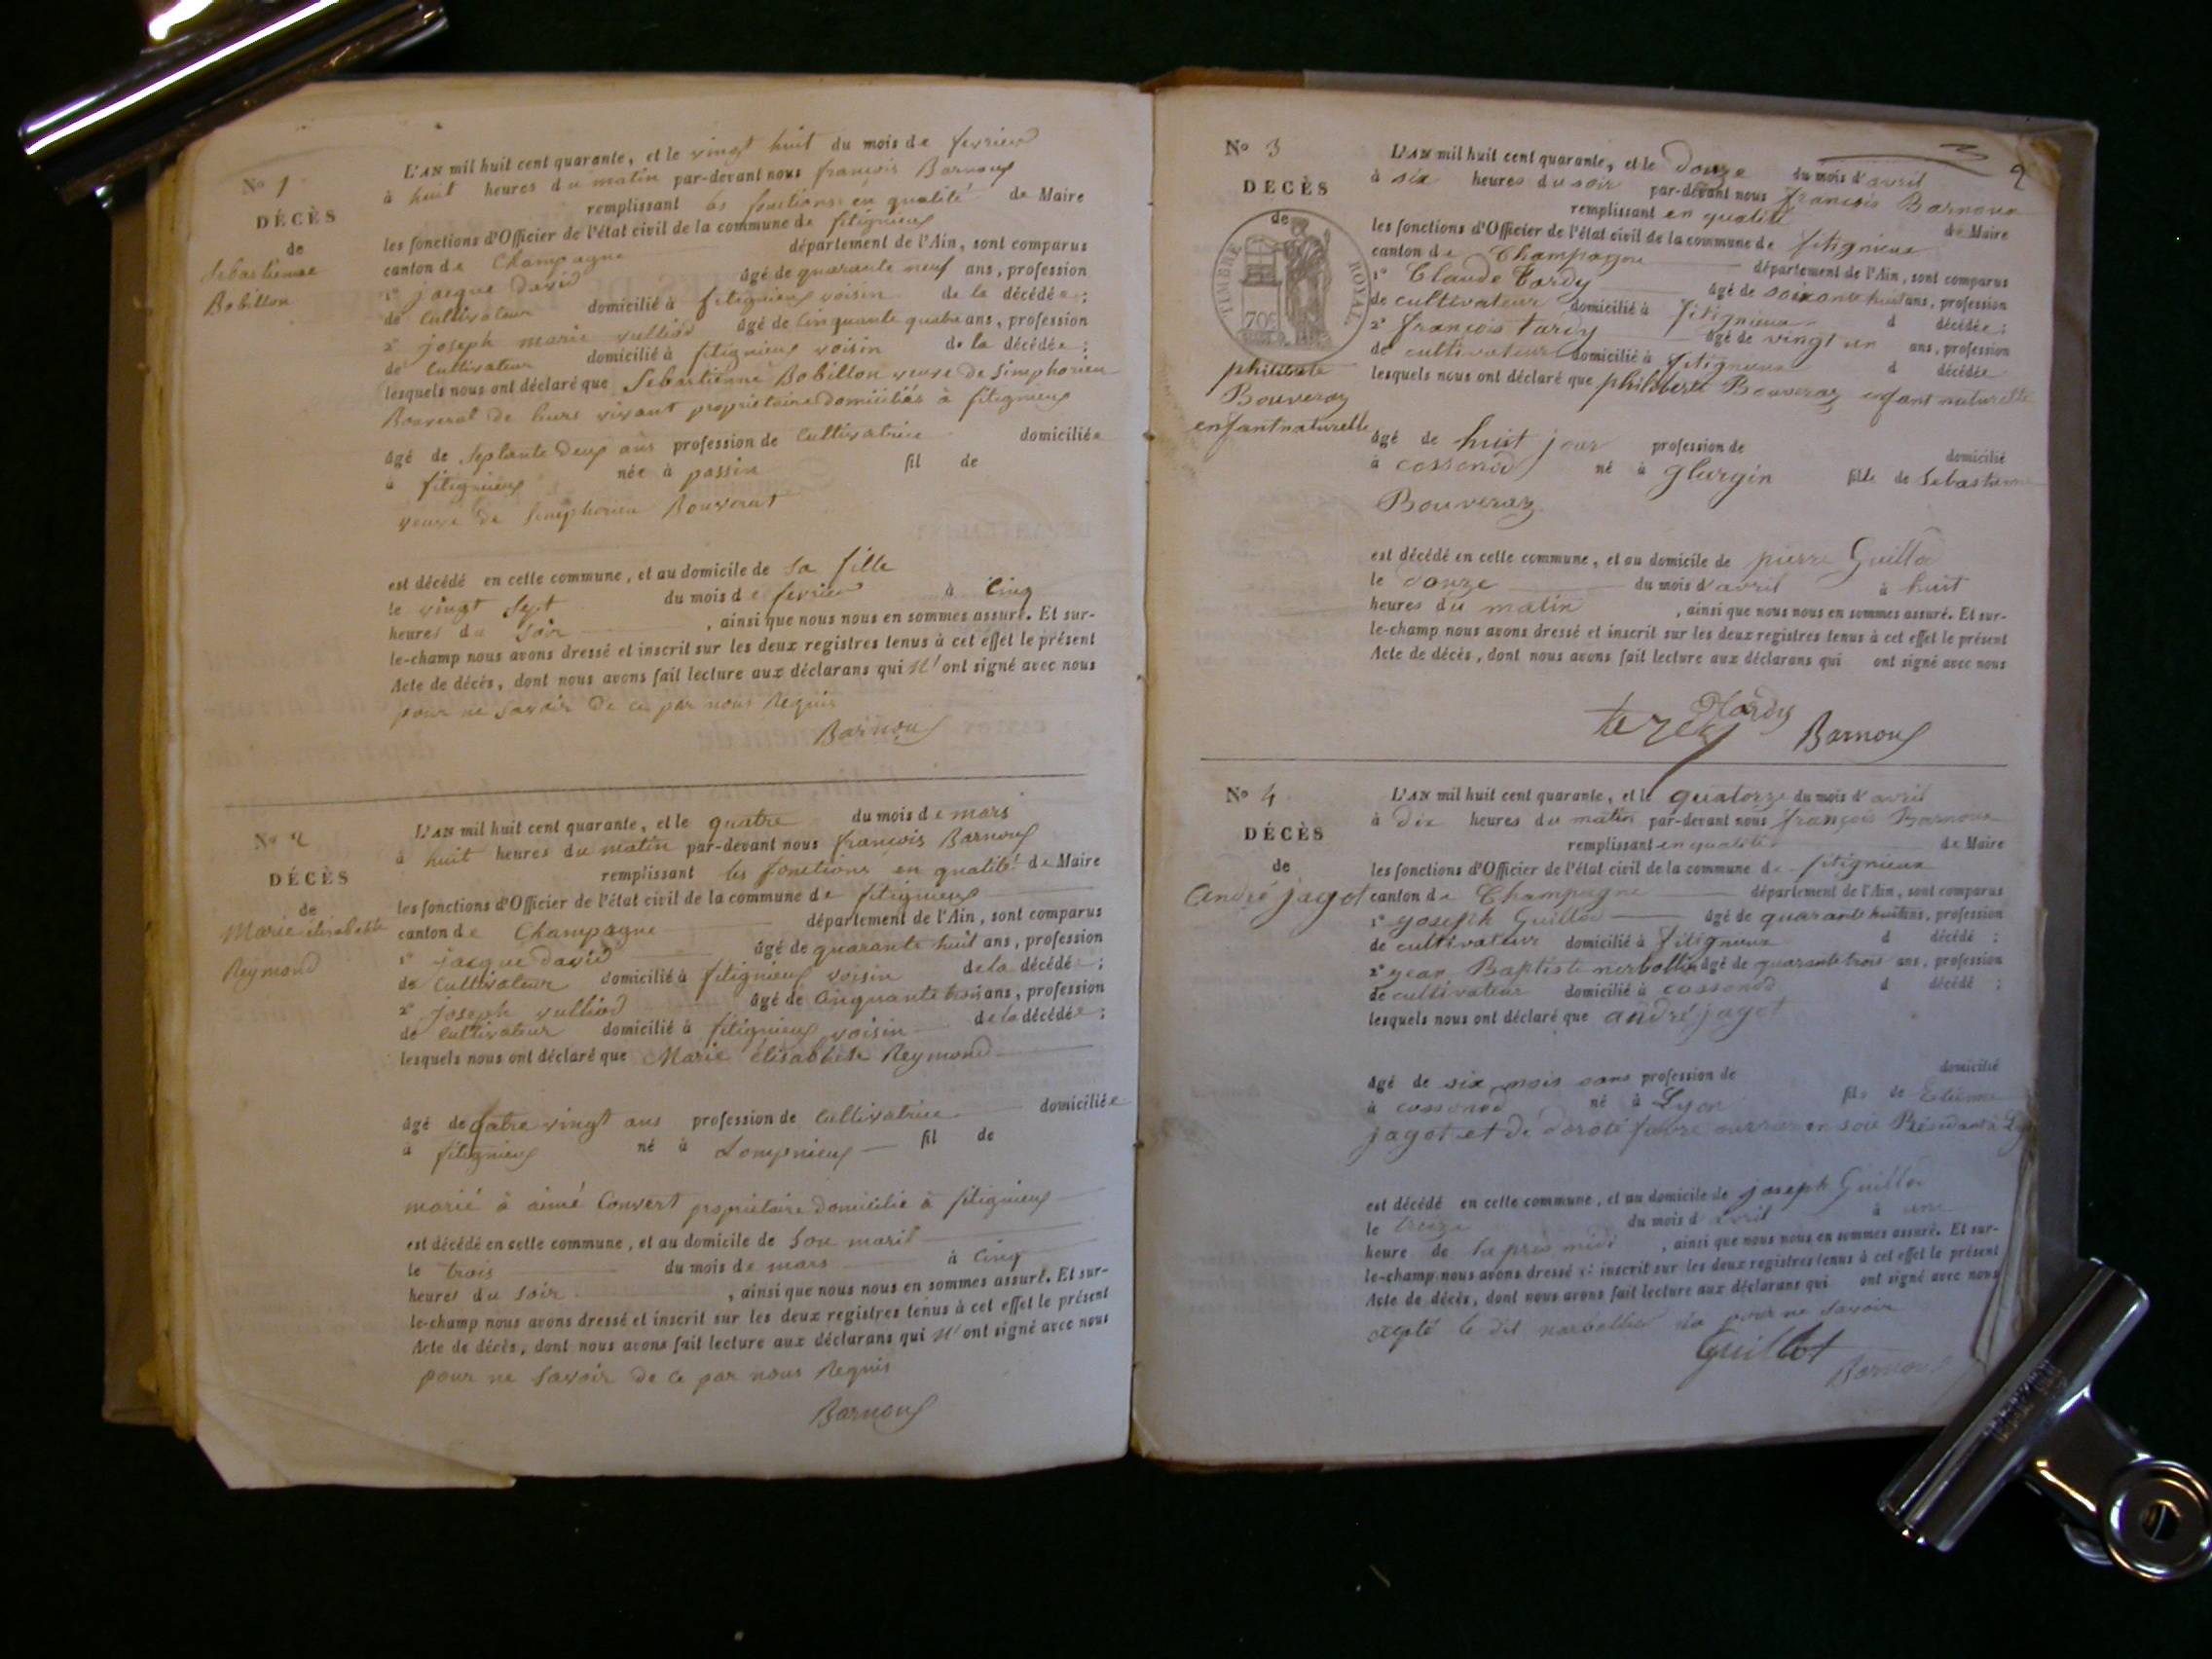 No 1
DÉCÈS
de
Sebastienne
Bobillon
L'AN mil huit cent quarante, et le vingt huit du mois de fevrier
à huit heures du matin par-devant nous françois Barnoux
remplissant les fonctions en qualité de Maire
les fonctions d'Officier de l'état civil de la commune de fitignieux
canton de Champagne département de l'Ain, sont comparus
1º jacque david âgé de quarante neuf ans, profession
de Cultivateur domicilié à fitignieux voisin de la décédée ;
2º joseph marie vulliod âgé de Cinquante quatre ans, profession
de Cultivateur domicilié à fitignieux voisin de la décédée ;
lesquels nous ont déclaré que Sebastienne Bobillon veuve de Simphorien
Bouverat de leurs vivant proprietaire domiciliés à fitignieux
âgé de Septante deux ans profession de Cultivatrice domiciliée
à fitignieux née à passin fil de
veuve de Simphorien Bouverat
est décédé en cette commune, et au domicile de Sa fille
le vingt Sept du mois de fevrier à Cinq
heures du Soir , ainsi que nous nous en sommes assuré. Et sur-
le-champ nous avons dressé et inscrit sur les deux registres tenus à cet effet le présent
Acte de décès, dont nous avons fait lecture aux déclarans qui N' ont signé avec nous
pour ne Savoir de ce par nous Requis
Barnoux
No 2
DÉCÈS
de
Marie élisabhete
Reymond
L'AN mil huit cent quarante, et le quatre du mois de mars
à huit heures du matin par-devant nous françois Barnoux
remplissant les fonctions en qualité de Maire
les fonctions d'Officier de l'état civil de la commune de fitignieux
canton de Champagne département de l'Ain, sont comparus
1º jacque david âgé de quarante huit ans, profession
de Cultivateur domicilié à fitignieux voisin de la décédée ;
2º joseph vulliod âgé de Cinquante trois ans, profession
de Cultivateur domicilié à fitignieux voisin de la décédée ;
lesquels nous ont déclaré que Marie élisabhete Reymond
âgé de quatre vingt ans profession de Cultivatrice domiciliée
à fitignieux né à Lompnieux fil de
marié à aimé Convert proprietaire domicilié à fitignieux
est décédé en cette commune, et au domicile de Son marit
le trois du mois de mars à Cinq
heures du Soir , ainsi que nous nous en sommes assuré. Et sur-
le-champ nous avons dressé et inscrit sur les deux registres tenus à cet effet le présent
Acte de décès, dont nous avons fait lecture aux déclarans qui N' ont signé avec nous
pour ne Savoir de ce par nous Requis
Barnoux
2
No 3
DECÈS
de
TIMBRE ROYAL
70c
philiberte
Bouveraz
enfant naturelle
L'AN mil huit cent quarante, et le Douze du mois d'avril
à six heures du soir par-devant nous françois Barnoux
remplissant en qualité de Maire
les fonctions d'Officier de l'état civil de la commune de fitignieux
canton de Champagne département de l'Ain, sont comparus
1º Claude tardy âgé de soixante huit ans, profession
de cultivateur domicilié à fitignieux d décédée ;
2º françois tardy âgé de vingt un ans, profession
de cultivateur domicilié à fitignieux d décédée
lesquels nous ont déclaré que philiberte Bouveraz enfant naturelle
âgé de huit jour profession de domicilié
à cossonod né à Glurgin fille de Sebastienne
Bouveraz
est décédé en cette commune, et au domicile de pierre Guillod
le douze du mois d'avril à huit
heures du matin , ainsi que nous nous en sommes assuré. Et sur-
le-champ nous avons dressé et inscrit sur les deux registres tenus à cet effet le présent
Acte de décès, dont nous avons fait lecture aux déclarans qui ont signé avec nous
tardy Barnoux
No 4
DÉCÈS
de
André jagot
L'AN mil huit cent quarante, et le quatorze du mois d'avril
à dix heures du matin par-devant nous françois Barnoux
remplissant en qualité de Maire
les fonctions d'Officier de l'état civil de la commune de fitignieux
canton de Champagne département de l'Ain, sont comparus
1º joseph Guillod âgé de quarante huit ans, profession
de cultivateur domicilié à fitignieux d décédé ;
2º jean Baptiste âgé de quarante trois ans, profession
de cultivateur domicilié à cossonod d décédé ;
lesquels nous ont déclaré que andré jagot
âgé de six mois sans profession de domicilié
à cossonod né à Lyon fils de Etienne
jagot et de doroté favre en soie Résidant à
est décédé en cette commune, et au domicile de joseph Guillod
le treize du mois d'avril à une
heure de laprès midi , ainsi que nous nous en sommes assuré. Et sur-
le-champ nous avons dressé et inscrit sur les deux registres tenus à cet effet le présent
Acte de décès, dont nous avons fait lecture aux déclarans qui ont signé avec nous
le dit pour ne Savoir
Guillot
Barnoux